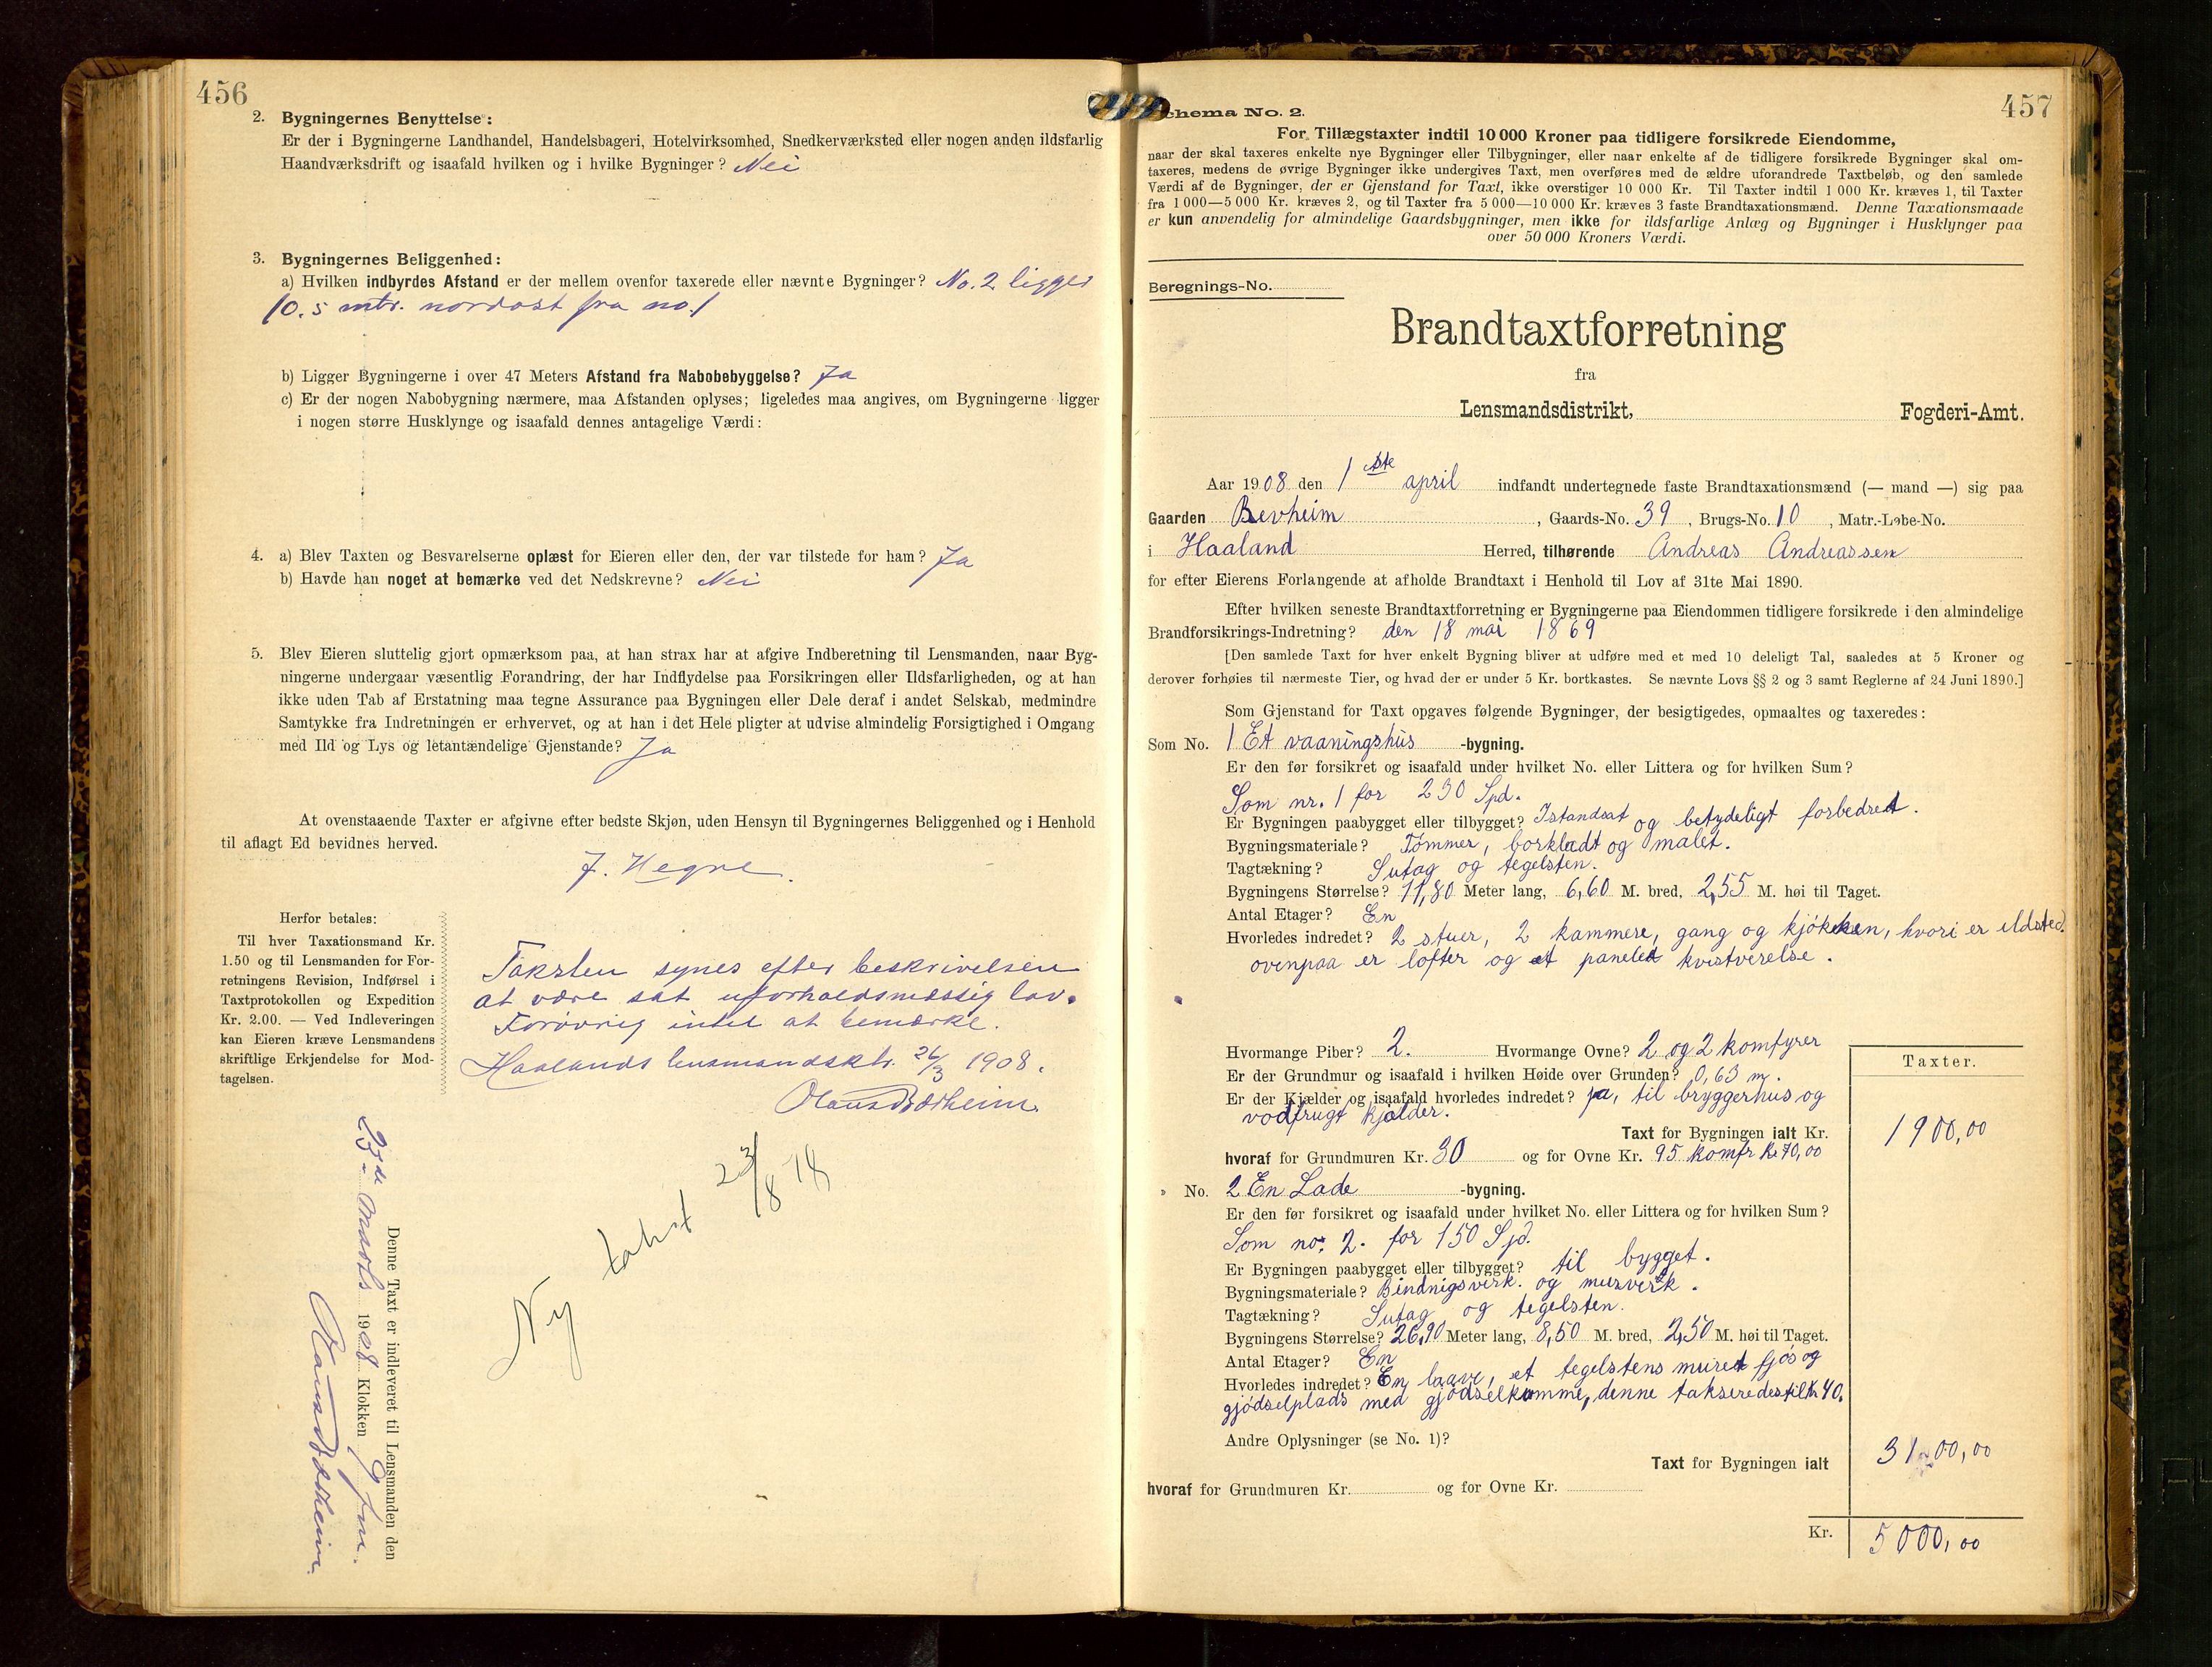 456
2. Bygningernes Benyttelse:
Er der i Bygningerne Landhandel, Handelsbageri, Hotelvirksomhed, Snedkerværksted eller nogen anden ildsfarlig
Haandværksdrift og isaafald hvilken og i hvilke Bygninger? Nei
3. Bygningernes Beliggenhed:
a) Hvilken indbyrdes Afstand er der mellem ovenfor taxerede eller nævnte Bygninger? No. 2 ligger
10.5 mtr. nordost fra no. 1
b) Ligger Bygningerne i over 47 Meters Afstand fra Nabobebyggelse? Ja
c) Er der nogen Nabobygning nærmere, maa Afstanden oplyses; ligeledes maa angives, om Bygningerne ligger
i nogen større Husklynge og isaafald dennes antagelige Værdi:
4. a) Blev Taxten og Besvarelserne oplæst for Eieren eller den, der var tilstede for ham? Ja
b) Havde han noget at bemærke ved det Nedskrevne? Nei
5. Blev Eieren sluttelig gjort opmærksom paa, at han strax har at afgive Indberetning til Lensmanden, naar Byg-
ningerne undergaar væsentlig Forandring, der har Indflydelse paa Forsikringen eller Ildsfarligheden, og at han
ikke uden Tab af Erstatning maa tegne Assurance paa Bygningen eller Dele deraf i andet Selskab, medmindre
Samtykke fra Indretningen er erhvervet, og at han i det Hele pligter at udvise almindelig Forsigtighed i Omgang
med Ild og Lys og letantændelige Gjenstande? Ja
At ovenstaaende Taxter er afgivne efter bedste Skjøn, uden Hensyn til Bygningernes Beliggenhed og i Henhold
til aflagt Ed bevidnes herved.
J. Hegre.
Herfor betales:
Til hver Taxationsmand Kr.
1.50 og til Lensmanden for For-
retningens Revision, Indførsel i
Taxtprotokollen og Expedition
Kr. 2.00. — Ved Indleveringen
kan Eieren kræve Lensmandens
skriftlige Erkjendelse for Mod-
tagelsen.
Taksten synes efter beskrivelsen
at være sat uforholdsmæssig lav.
Forøvrig intet at bemærke.
Haalands lensmandsktr. 26/3 1908.
Olaus Bærheim.
Ny takst 23/8 18
Denne Taxt er indleveret til Lensmanden den
23de marts 1908 Klokken 9 fm.
Olaus Bærheim.
457
Schema No. 2.
For Tillægstaxter indtil 10 000 Kroner paa tidligere forsikrede Eiendomme,
naar der skal taxeres enkelte nye Bygninger eller Tilbygninger, eller naar enkelte af de tidligere forsikrede Bygninger skal om-
taxeres, medens de øvrige Bygninger ikke undergives Taxt, men overføres med de ældre uforandrede Taxtbeløb, og den samlede
Værdi af de Bygninger, der er Gjenstand for Taxt, ikke overstiger 10 000 Kr. Til Taxter indtil 1 000 Kr. kræves 1, til Taxter
fra 1 000—5 000 Kr. kræves 2, og til Taxter fra 5 000—10 000 Kr. kræves 3 faste Brandtaxationsmænd. Denne Taxationsmaade
er kun anvendelig for almindelige Gaardsbygninger, men ikke for ildsfarlige Anlæg og Bygninger i Husklynger paa
over 50 000 Kroners Værdi.
Beregnings-No.
Brandtaxtforretning
fra
Lensmandsdistrikt, Fogderi-Amt.
Aar 1908 den 1ste april indfandt undertegnede faste Brandtaxationsmænd (— mand —) sig paa
Gaarden Bevheim, Gaards-No. 39, Brugs-No. 10, Matr.-Løbe-No.
i Haaland Herred, tilhørende Andreas Andreassen
for efter Eierens Forlangende at afholde Brandtaxt i Henhold til Lov af 31te Mai 1890.
Efter hvilken seneste Brandtaxtforretning er Bygningerne paa Eiendommen tidligere forsikrede i den almindelige
Brandforsikrings-Indretning? den 18 mai 1869
[Den samlede Taxt for hver enkelt Bygning bliver at udføre med et med 10 deleligt Tal, saaledes at 5 Kroner og
derover forhøies til nærmeste Tier, og hvad der er under 5 Kr. bortkastes. Se nævnte Lovs §§ 2 og 3 samt Reglerne af 24 Juni 1890.]
Som Gjenstand for Taxt opgaves følgende Bygninger, der besigtigedes, opmaaltes og taxeredes:
Som No. 1 Et vaaningshus -bygning.
Er den før forsikret og isaafald under hvilket No. eller Littera og for hvilken Sum?
Som nr. 1 for 230 Spd.
Er Bygningen paabygget eller tilbygget? Istandsat og betydeligt forbedret.
Bygningsmateriale? Tømmer, borkledt og malet.
Tagtækning? Sutag og tegelsten.
Bygningens Størrelse? 11,80 Meter lang, 6,60 M. bred, 2,55 M. høi til Taget.
Antal Etager? En
Hvorledes indredet? 2 stuer, 2 kammere, gang og kjøkken, hvori er ildsted.
ovenpaa er lofter og et panelet kvistverelse.
Hvormange Piber? 2. Hvormange Ovne? 2 og 2 komfyrer
Er der Grundmur og isaafald i hvilken Høide over Grunden? 0,63 m.
Er der Kjælder og isaafald hvorledes indredet? ja, til bryggerhus og
vodfrugt kjælder.
Taxter.
Taxt for Bygningen ialt Kr. 1900,00
hvoraf for Grundmuren Kr. 30 og for Ovne Kr. 95 komfr Kr 70,00
» No. 2 En Lade -bygning.
Er den før forsikret og isaafald under hvilket No. eller Littera og for hvilken Sum?
Som no: 2. for 150 Spd.
Er Bygningen paabygget eller tilbygget? til bygget.
Bygningsmateriale? Bindnigsverk. og murverk.
Tagtækning? Sutag og tegelsten.
Bygningens Størrelse? 26,90 Meter lang, 8,50 M. bred, 2,50 M. høi til Taget.
Antal Etager? En
Hvorledes indredet? En laave, et tegelstens muret fjøs og
gjødselplads med gjødselkumme, denne takseredes til Kr 40.
Andre Oplysninger (se No. 1)?
Taxt for Bygningen ialt 3100,00
hvoraf for Grundmuren Kr. og for Ovne Kr.
Kr. 5000,00